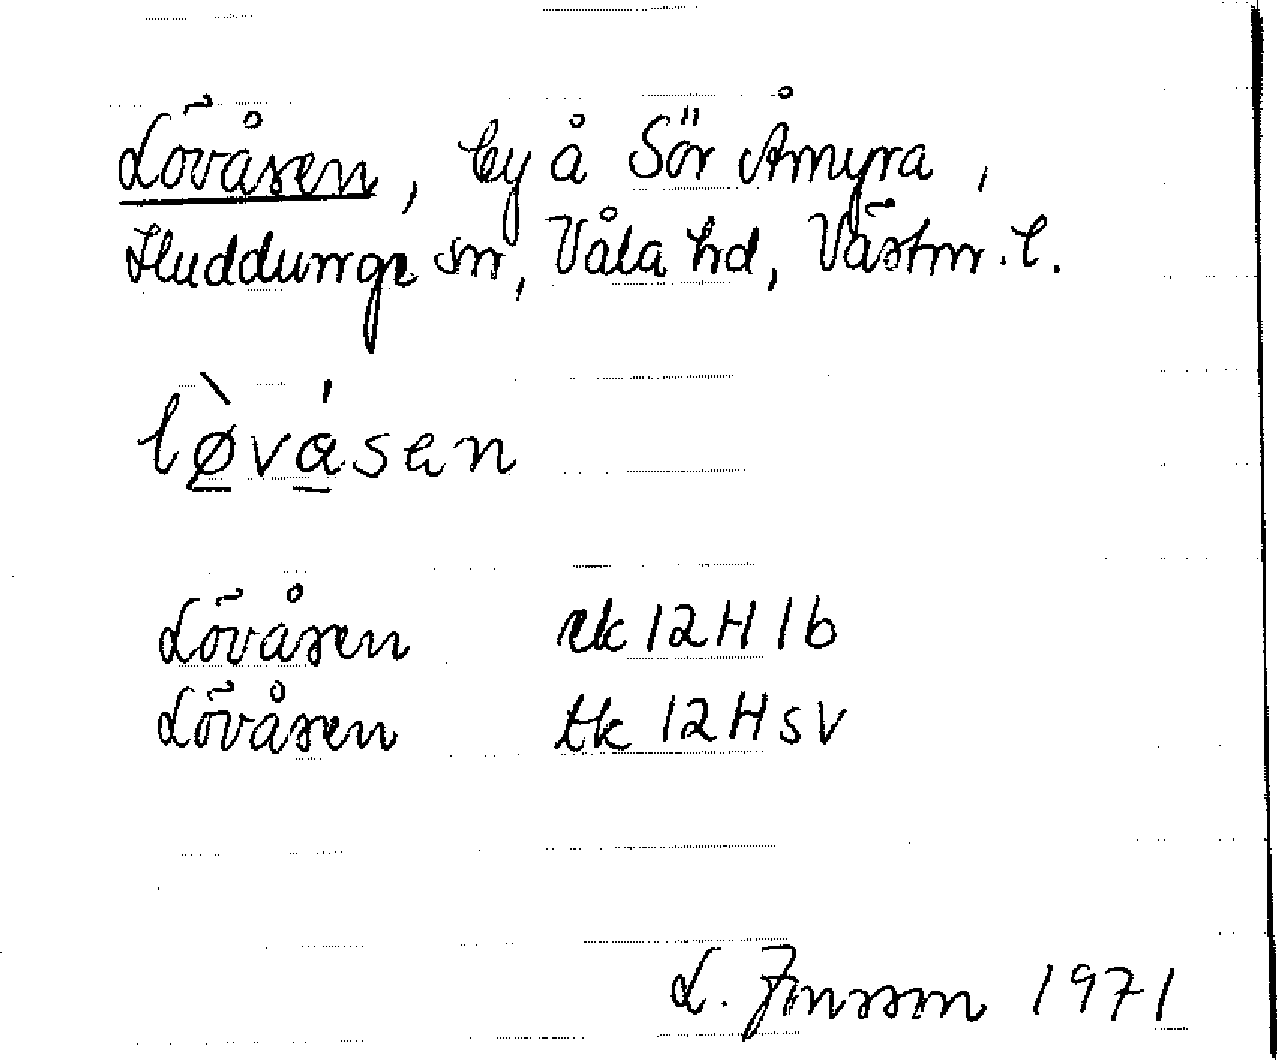 Lövåsen, by å Sör Åmyra,
Huddunge sn, Våla hd, Västm. l.
lø̲̀vá̲sen
Lövåsen rk 12H 1b
Lövåsen tk 12H SV
L. Jonsson 1971